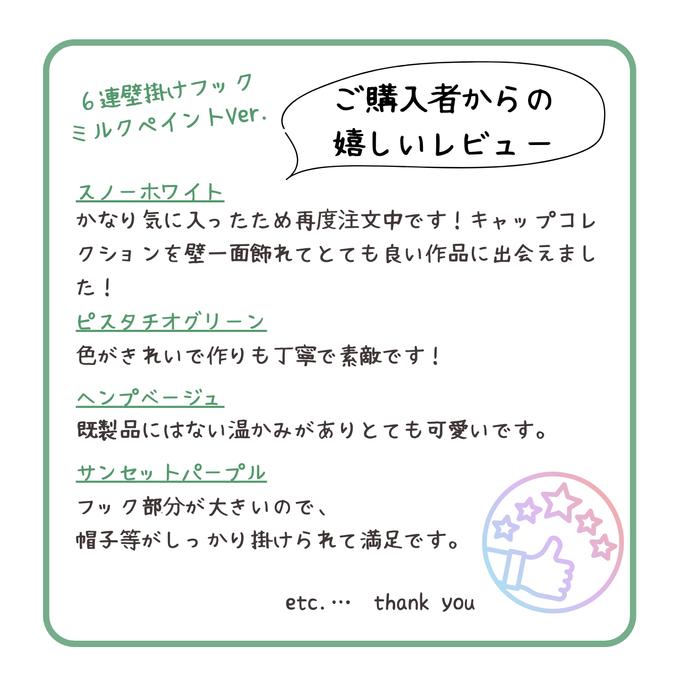 6連壁掛けフック
ミルクペイントVer.
ご購入者からの
嬉しいレビュー
スノーホワイト
かなり気に入ったため再度注文中です！キャップコレ
クションを壁一面飾れてとても良い作品に出会えまし
た！
ピスタチオグリーン
色がきれいで作りも丁寧で素敵です！
ヘンプベージュ
既製品にはない温かみがありとても可愛いです。
サンセットパープル
フック部分が大きいので、
帽子等がしっかり掛けられて満足です。
etc.… thank you